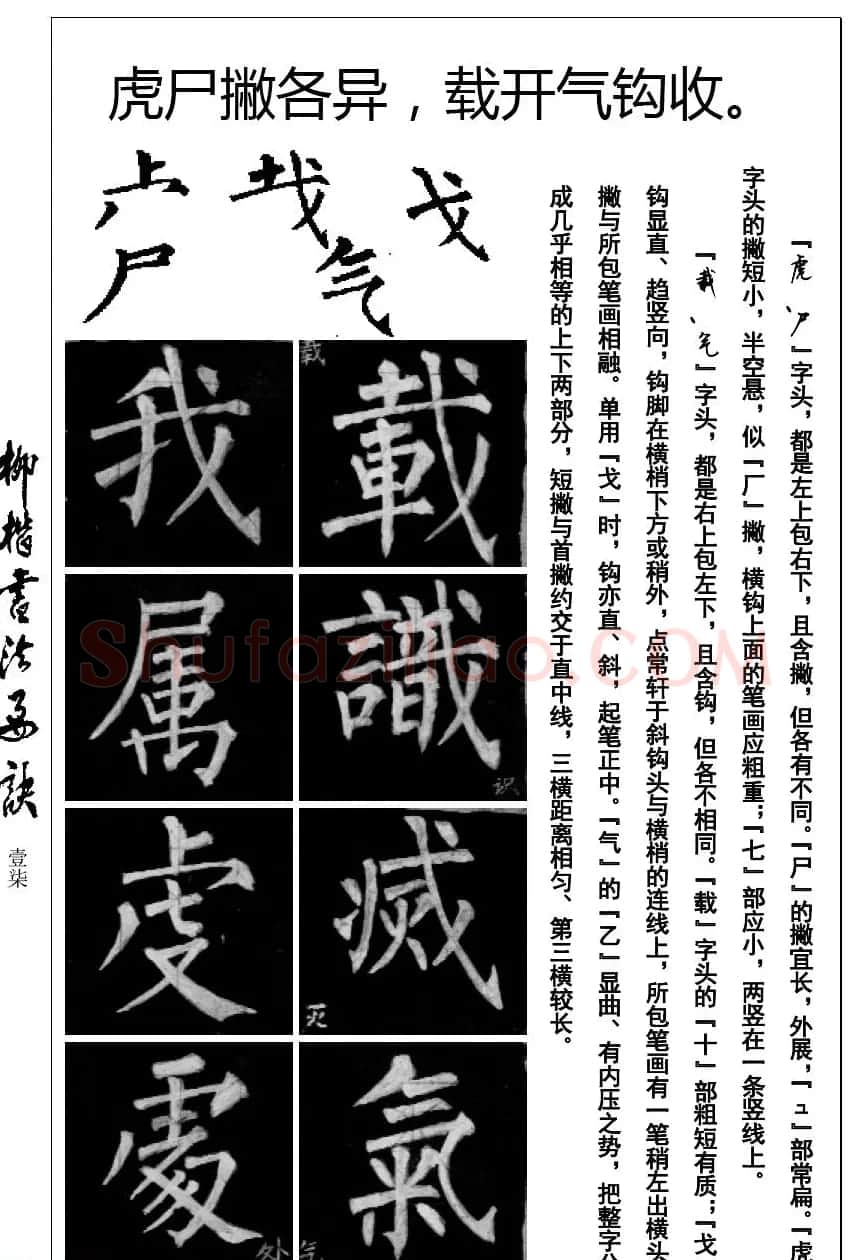 虎尸撇各异，载开气钩收。
『虎、尸』字头，都是左上包右下，且含撇，但各有不同。『尸』的撇宜长，外展，『ュ』部常扁。『虎
字头的撇短小，半空悬，似『厂』撇，横钩上面的笔画应粗重；『七』部应小，两竖在一条竖线上。
『载、气』字头，都是右上包左下，且含钩，但各不相同。『载』字头的『十』部粗短有质；『戈
钩显直、趋竖向，钩脚在横梢下方或稍外，点常轩于斜钩头与横梢的连线上，所包笔画有一笔稍左出横头
撇与所包笔画相融。单用『戈』时，钩亦直、斜，起笔正中。『气』的『乙』显曲、有内压之势，把整字分
成几乎相等的上下两部分，短撇与首撇约交于直中线，三横距离相匀、第三横较长。
戈
尸
气
載
载
我
識
识
属
滅
灭
虔
氣
气
處
处
柳楷书法要诀
壹柒
Shufaziliao.COM